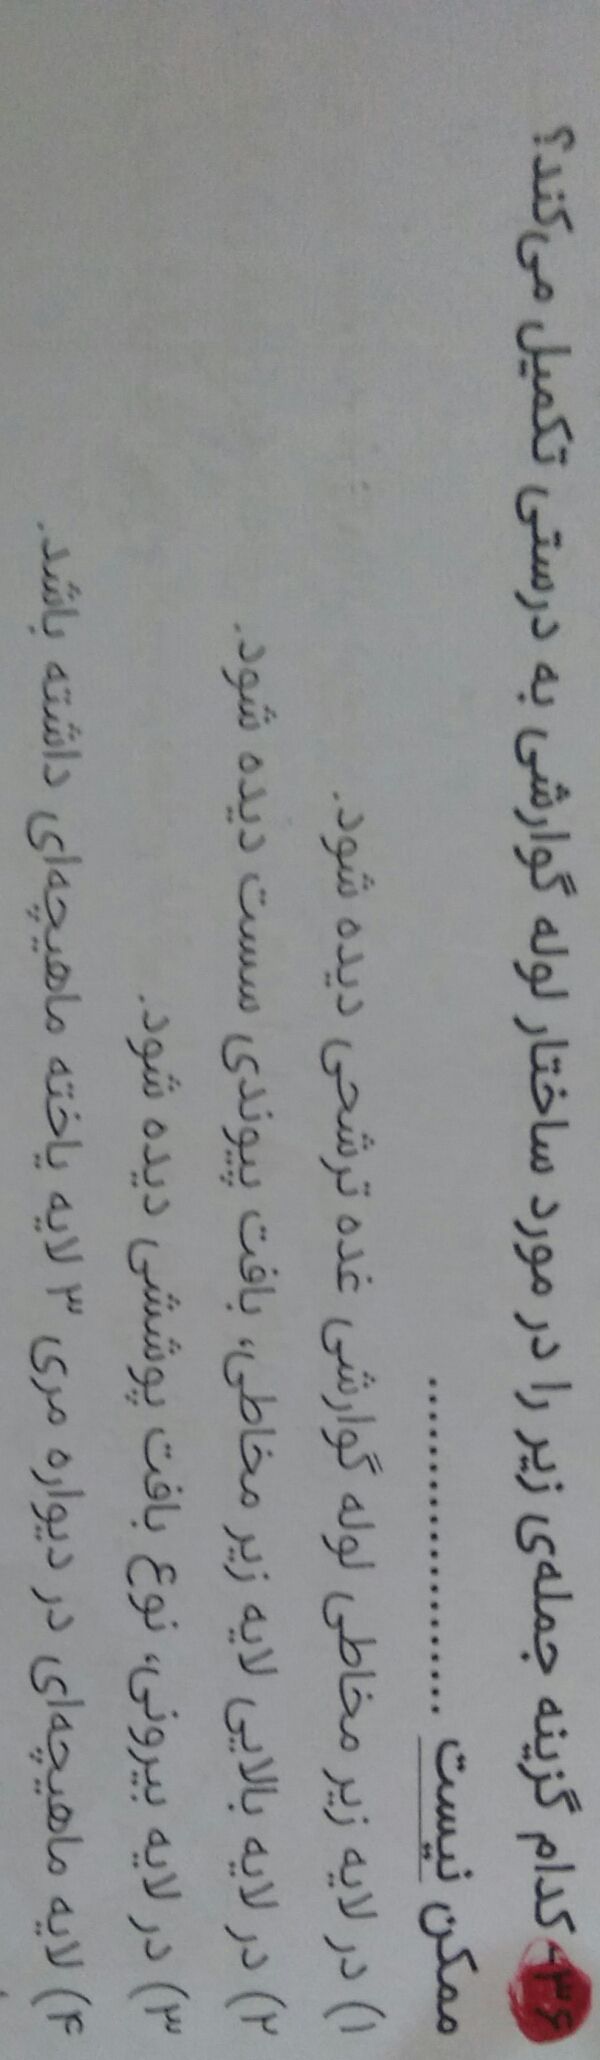 ۳۶- کدام گزینه جمله‌ی زیر را در مورد ساختار لوله گوارشی به درستی تکمیل می‌کند؟
ممکن نیست ....................
۱) در لایه زیر مخاطی لوله گوارشی غده ترشحی دیده شود.
۲) در لایه بالایی لایه زیر مخاطی، بافت پیوندی سست دیده شود.
۳) در لایه بیرونی، نوع بافت پوششی دیده شود.
۴) لایه ماهیچه‌ای در دیواره مری ۳ لایه یاخته ماهیچه‌ای داشته باشد.